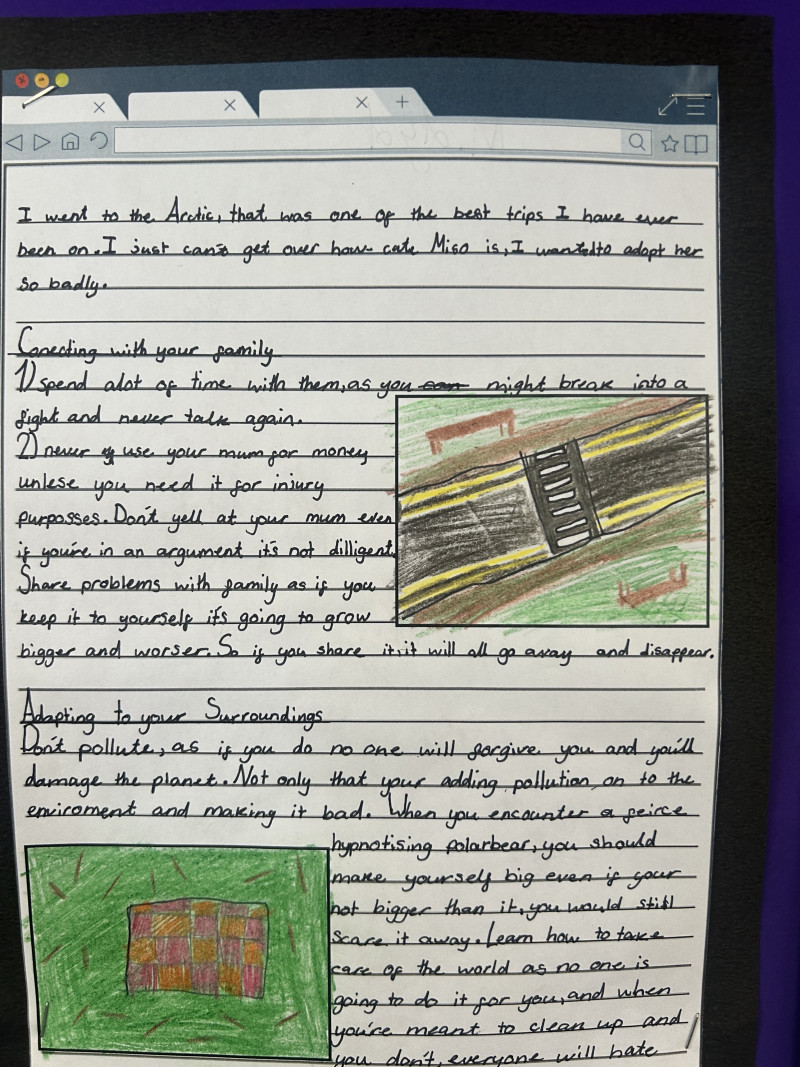 I went to the Arctic, that was one of the best trips I have ever
been on. I just can't get over how cute Miso is, I wanted to adopt her
so badly.
Conecting with your family
1) spend alot of time with them, as you can might break into a
fight and never talk again.
2) never use your mum for money
unlese you need it for injury
purposses. Don't yell at your mum even
if you're in an argument it's not dilligent.
Share problems with family as if you
keep it to yourself it's going to grow
bigger and worser. So if you share it, it will all go away and disappear.
Adapting to your Surroundings
Don't pollute, as if you do no one will forgive you and you'll
damage the planet. Not only that your adding pollution on to the
enviroment and making it bad. When you encounter a feirce
hypnotising polarbear, you should
make yourself big even if your
not bigger than it, you would still
scare it away. Learn how to take
care of the world as no one is
going to do it for you, and when
you're meant to clean up and
you don't, everyone will hate